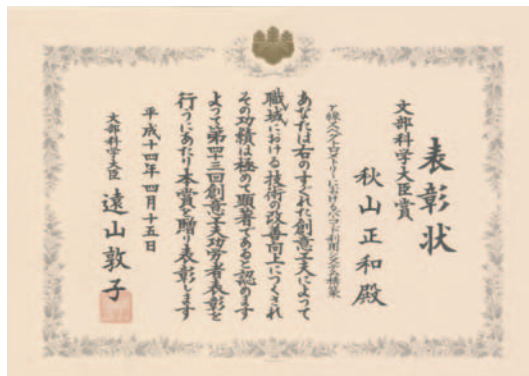 表彰状
文部科学大臣賞
秋山正和殿
γ線スペクトロメトリーにおけるウェブ利用システムの構築
あなたは右のすぐれた創意工夫によって
職域における技術の改善向上につくされ
その功績は極めて顕著であると認めます
よって第四十三回創意工夫功労者表彰を
行うにあたり本賞を贈り表彰します
平成十四年四月十五日
文部科学大臣
遠山敦子